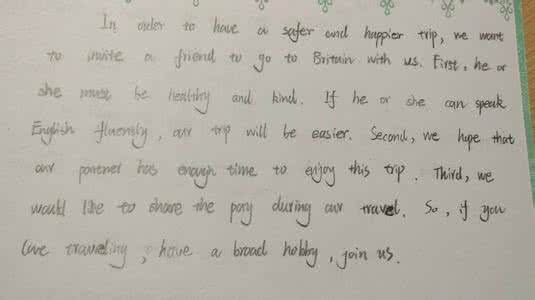 In order to have a safer and happier trip, we want
to invite a friend to go to Britain with us. First, he or
she must be healthy and kind. If he or she can speak
English fluensly, our trip will be easier. Second, we hope that
our partner has enough time to enjoy this trip. Third, we
would like to share the pay during our travel. So, if you
love traveling, have a broad hobby, join us.